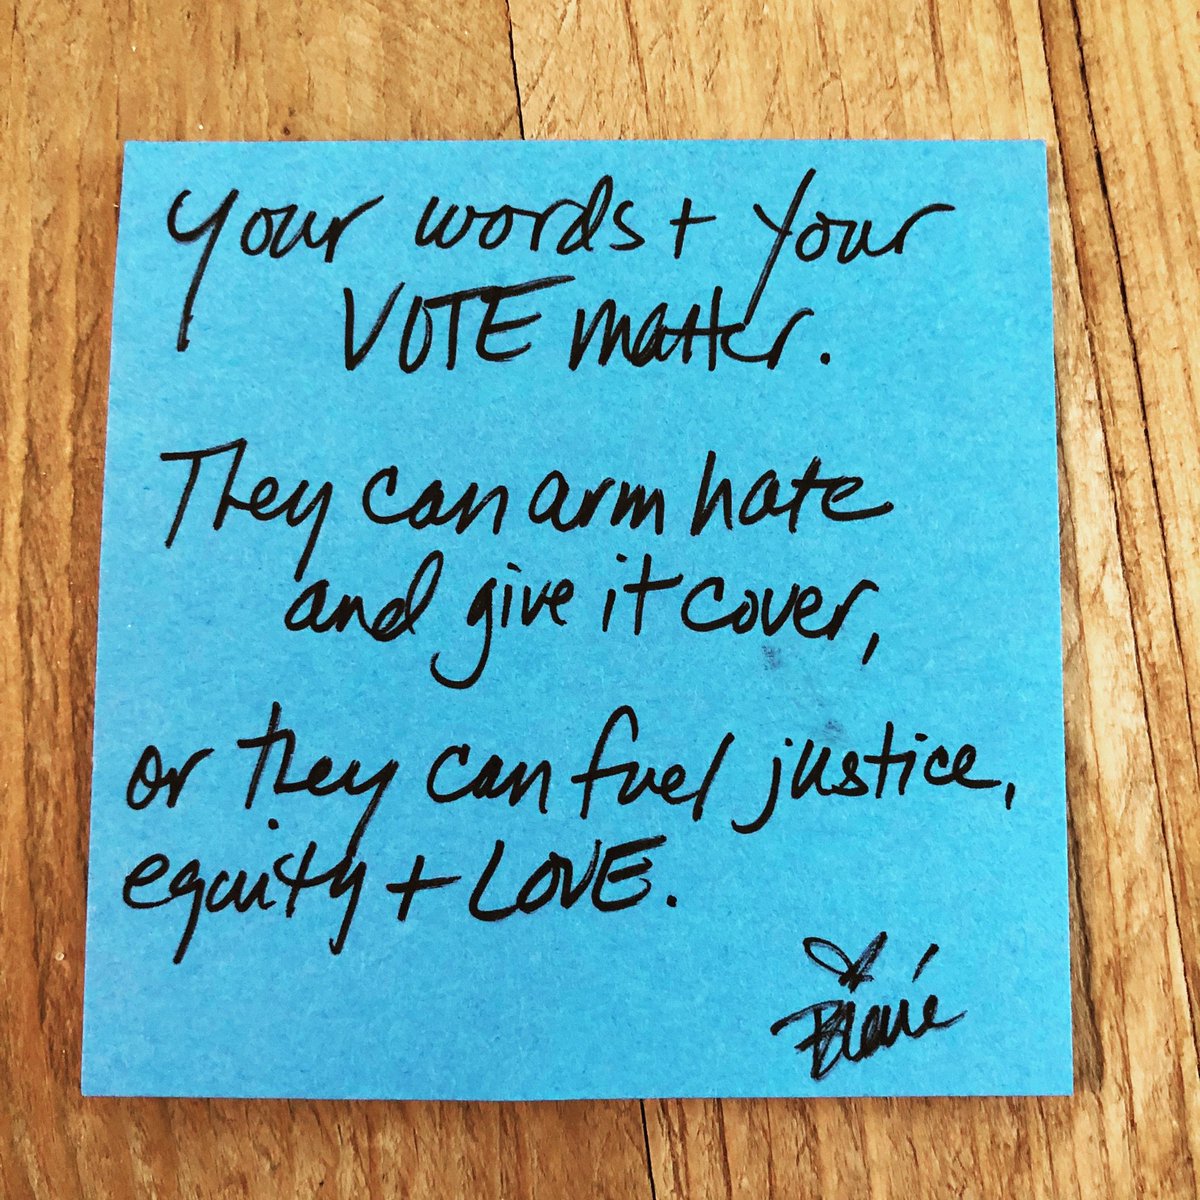 your words + your
VOTE matter.
They can arm hate
and give it cover,
or they can fuel justice,
equity + LOVE.